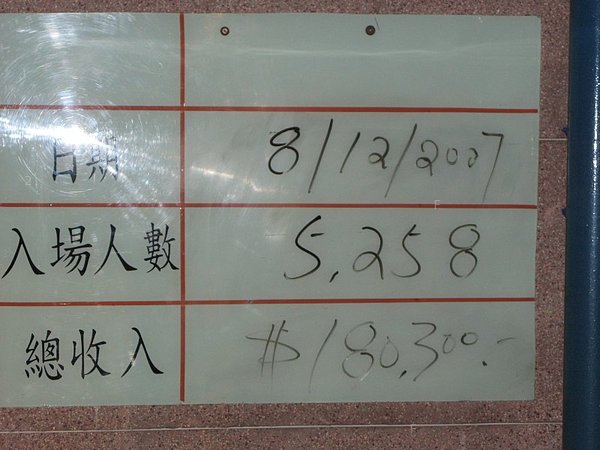 日期 8/12/2007
入場人數 5,258
總收入 $180,300.-